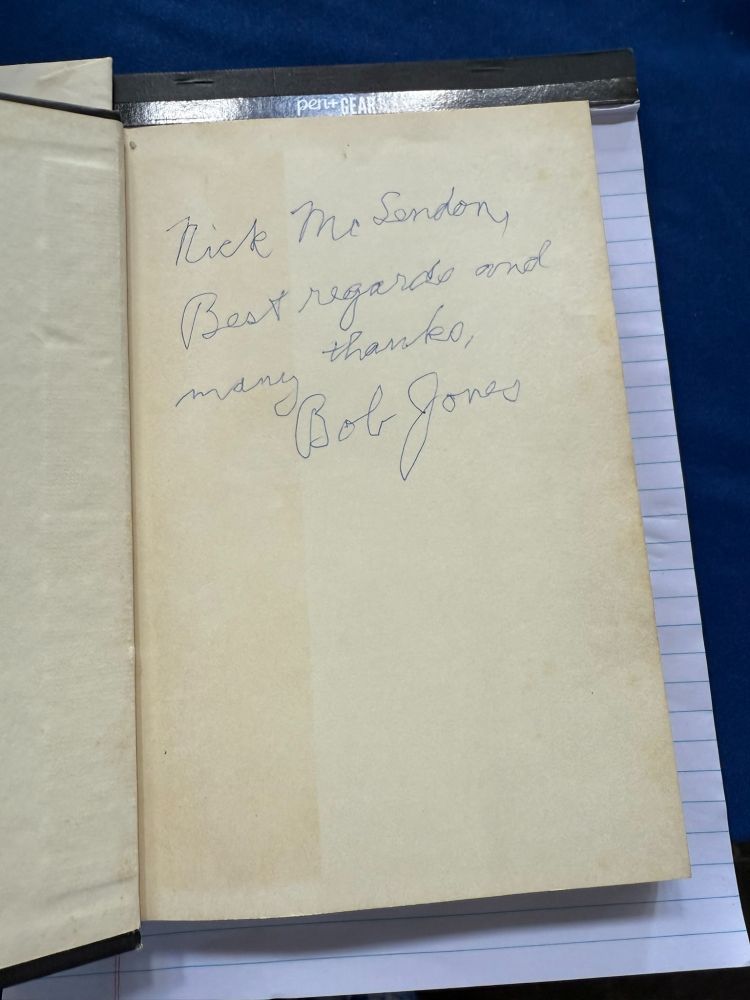 pen+GEAR
Nick McLendon,
Best regards and
many thanks,
Bob Jones